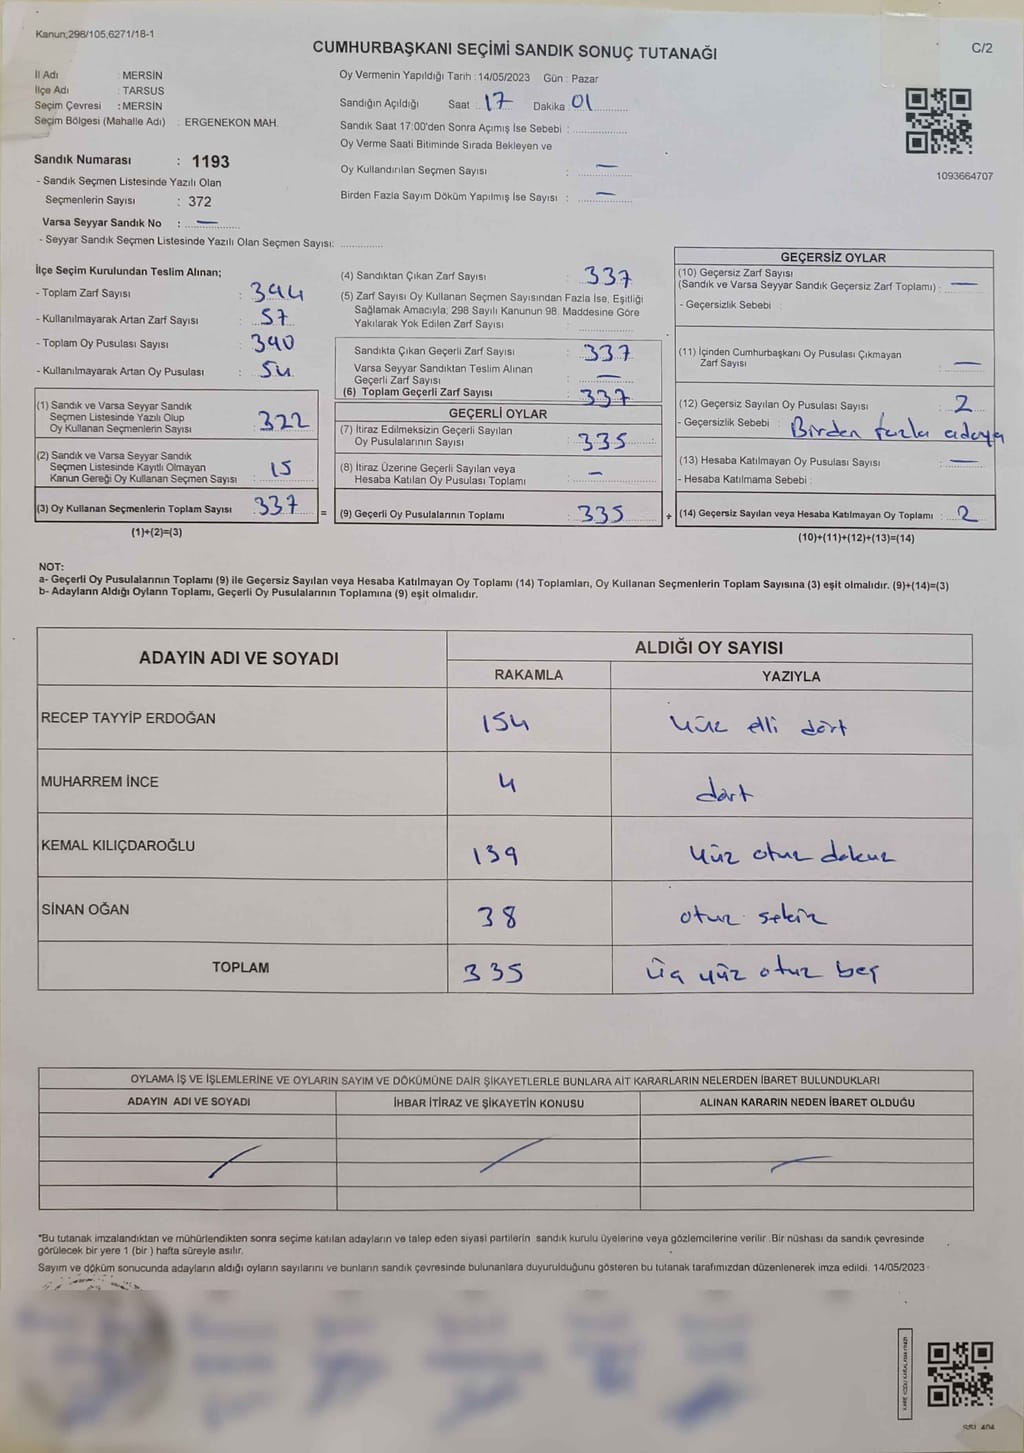 Kanun;298/105,6271/18-1
CUMHURBAŞKANI SEÇİMİ SANDIK SONUÇ TUTANAĞI
C/2
İl Adı : MERSİN
İlçe Adı : TARSUS
Seçim Çevresi : MERSİN
Seçim Bölgesi (Mahalle Adı) : ERGENEKON MAH.
Sandık Numarası : 1193
- Sandık Seçmen Listesinde Yazılı Olan
Seçmenlerin Sayısı : 372
Varsa Seyyar Sandık No : —
- Seyyar Sandık Seçmen Listesinde Yazılı Olan Seçmen Sayısı:
Oy Vermenin Yapıldığı Tarih : 14/05/2023 Gün : Pazar
Sandığın Açıldığı Saat : 17 Dakika : 01
Sandık Saat 17:00'den Sonra Açımış İse Sebebi :
Oy Verme Saati Bitiminde Sırada Bekleyen ve
Oy Kullandırılan Seçmen Sayısı : —
Birden Fazla Sayım Döküm Yapılmış İse Sayısı : —
1093664707
İlçe Seçim Kurulundan Teslim Alınan;
- Toplam Zarf Sayısı : 394
- Kullanılmayarak Artan Zarf Sayısı : 57
- Toplam Oy Pusulası Sayısı : 390
- Kullanılmayarak Artan Oy Pusulası : 54
(1) Sandık ve Varsa Seyyar Sandık
Seçmen Listesinde Yazılı Olup
Oy Kullanan Seçmenlerin Sayısı : 322
(2) Sandık ve Varsa Seyyar Sandık
Seçmen Listesinde Kayıtlı Olmayan
Kanun Gereği Oy Kullanan Seçmen Sayısı : 15
(3) Oy Kullanan Seçmenlerin Toplam Sayısı : 337 =
(1)+(2)=(3)
(4) Sandıktan Çıkan Zarf Sayısı : 337
(5) Zarf Sayısı Oy Kullanan Seçmen Sayısından Fazla İse, Eşitliği
Sağlamak Amacıyla; 298 Sayılı Kanunun 98. Maddesine Göre
Yakılarak Yok Edilen Zarf Sayısı :
Sandıkta Çıkan Geçerli Zarf Sayısı : 337
Varsa Seyyar Sandıktan Teslim Alınan
Geçerli Zarf Sayısı : —
(6) Toplam Geçerli Zarf Sayısı : 337
GEÇERLİ OYLAR
(7) İtiraz Edilmeksizin Geçerli Sayılan
Oy Pusulalarının Sayısı : 335
(8) İtiraz Üzerine Geçerli Sayılan veya
Hesaba Katılan Oy Pusulası Toplamı : —
(9) Geçerli Oy Pusulalarının Toplamı : 335 +
GEÇERSİZ OYLAR
(10) Geçersiz Zarf Sayısı
(Sandık ve Varsa Seyyar Sandık Geçersiz Zarf Toplamı) : —
- Geçersizlik Sebebi :
(11) İçinden Cumhurbaşkanı Oy Pusulası Çıkmayan
Zarf Sayısı : —
(12) Geçersiz Sayılan Oy Pusulası Sayısı : 2
- Geçersizlik Sebebi : Birden fazla adaya
(13) Hesaba Katılmayan Oy Pusulası Sayısı : —
- Hesaba Katılmama Sebebi :
(14) Geçersiz Sayılan veya Hesaba Katılmayan Oy Toplamı : 2
(10)+(11)+(12)+(13)=(14)
NOT:
a- Geçerli Oy Pusulalarının Toplamı (9) ile Geçersiz Sayılan veya Hesaba Katılmayan Oy Toplamı (14) Toplamları, Oy Kullanan Seçmenlerin Toplam Sayısına (3) eşit olmalıdır. (9)+(14)=(3)
b- Adayların Aldığı Oyların Toplamı, Geçerli Oy Pusulalarının Toplamına (9) eşit olmalıdır.
ADAYIN ADI VE SOYADI
ALDIĞI OY SAYISI
RAKAMLA YAZIYLA
RECEP TAYYİP ERDOĞAN 154 yüz elli dört
MUHARREM İNCE 4 dört
KEMAL KILIÇDAROĞLU 139 yüz otuz dokuz
SİNAN OĞAN 38 otuz sekiz
TOPLAM 335 üç yüz otuz beş
OYLAMA İŞ VE İŞLEMLERİNE VE OYLARIN SAYIM VE DÖKÜMÜNE DAİR ŞİKAYETLERLE BUNLARA AİT KARARLARIN NELERDEN İBARET BULUNDUKLARI
ADAYIN ADI VE SOYADI İHBAR İTİRAZ VE ŞİKAYETİN KONUSU ALINAN KARARIN NEDEN İBARET OLDUĞU
"Bu tutanak imzalandıktan ve mühürlendikten sonra seçime katılan adayların ve talep eden siyasi partilerin sandık kurulu üyelerine veya gözlemcilerine verilir. Bir nüshası da sandık çevresinde
görülecek bir yere 1 (bir ) hafta süreyle asılır.
Sayım ve döküm sonucunda adayların aldığı oyların sayılarını ve bunların sandık çevresinde bulunanlara duyurulduğunu gösteren bu tutanak tarafımızdan düzenlenerek imza edildi. 14/05/2023